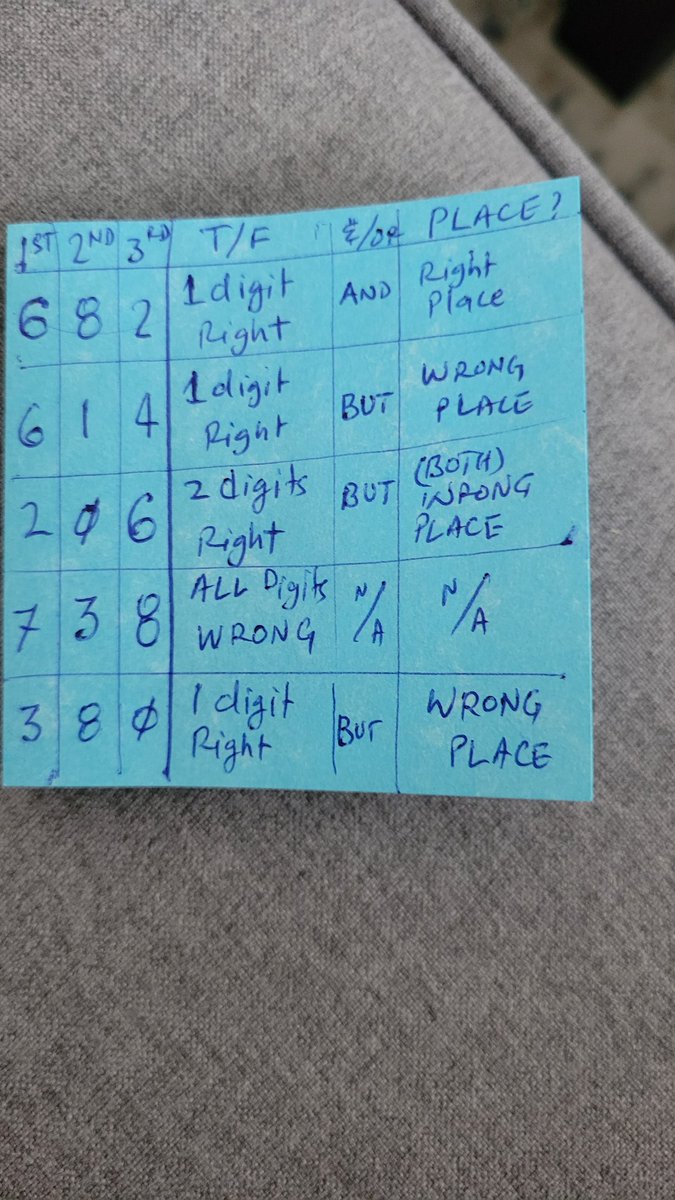 1ST 2ND 3RD T/F &/OR PLACE?
6 8 2 1 digit Right AND Right Place
6 1 4 1 digit Right BUT WRONG PLACE
2 0 6 2 digits Right BUT (BOTH) WRONG PLACE
7 3 8 ALL Digits WRONG N/A N/A
3 8 0 1 digit Right BUT WRONG PLACE